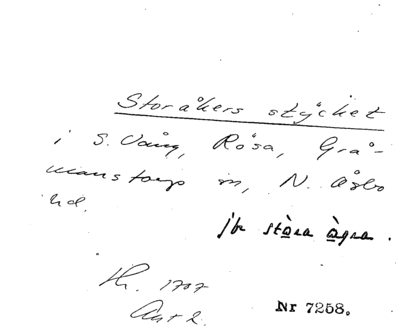 Storåkers stycket
i S. Vång, Rösa, Grå-
manstorps sn, N. Åsbo
hd.
jfr stòra àgra.
Lh. 1707
Akt 2.
Nr 7258.